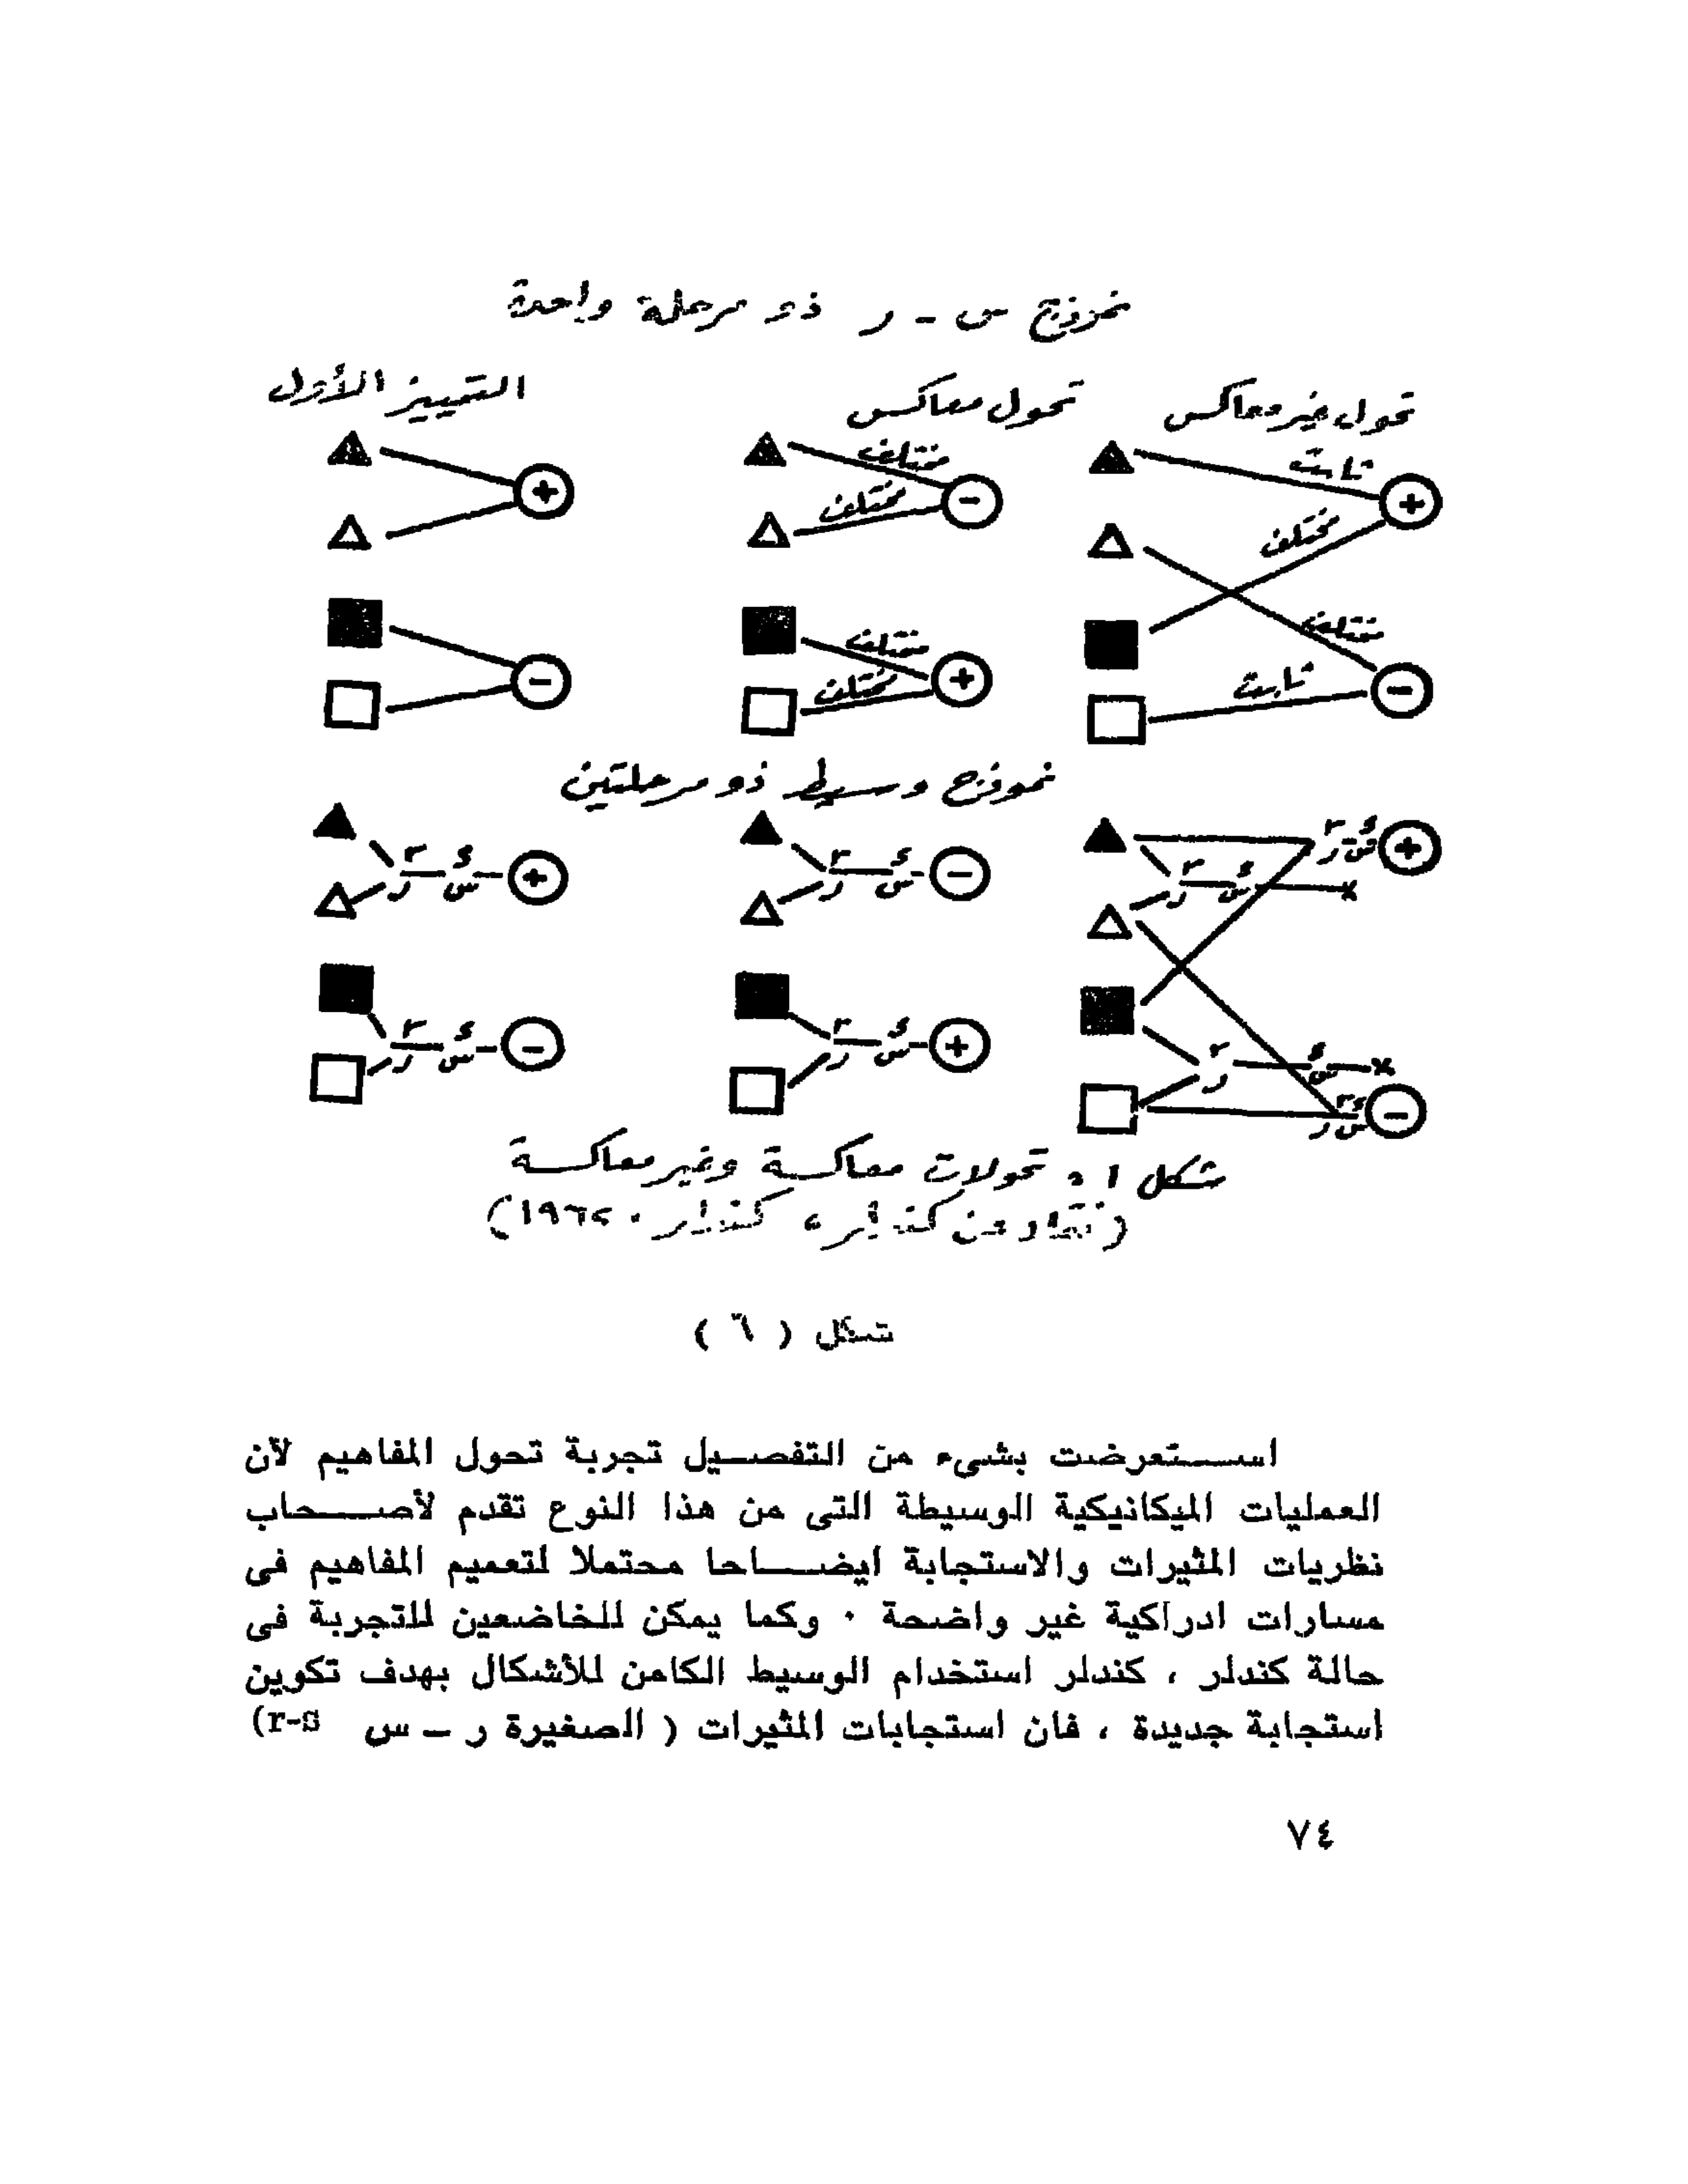 نموذج س - ر ذو مرحلة واحدة
تحول غير معاكس
تحول معاكس
التمييز الأول
ثابت
مختلف
مختلف
ثابت
مختلف
مختلف
مختلف
مختلف
نموذج وسيط ذو مرحلتين
شكل ١ : تحولات معاكسة وغير معاكسة
( نقلا عن كندلر ، كندلر ، ١٩٦٢)
شكل ( ٦ )
استعرضت بشىء من التفصيل تجربة تحول المفاهيم لآن
العمليات الميكانيكية الوسيطة التى من هذا النوع تقدم لأصحاب
نظريات المثيرات والاستجابة ايضاحا محتملا لتعميم المفاهيم فى
مسارات ادراكية غير واضحة . وكما يمكن للخاضعين للتجربة فى
حالة كندلر ، كندلر استخدام الوسيط الكامن للأشكال بهدف تكوين
استجابة جديدة ، فان استجابات المثيرات ( الصغيرة ر - س r-s)
٧٤